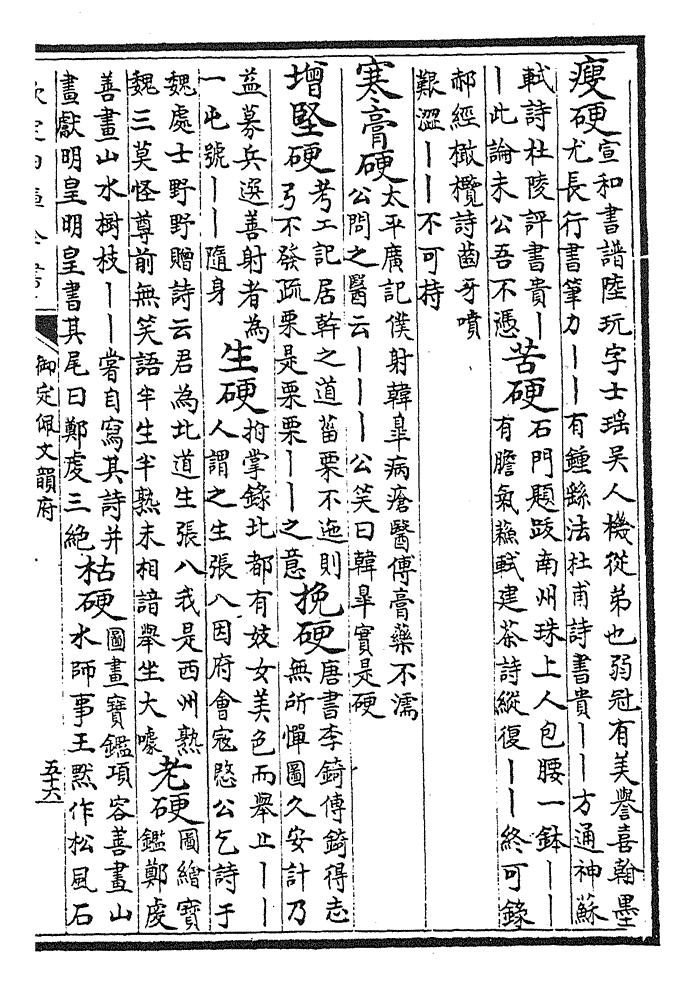 瘦硬
宣和書譜陸玩字士瑶吳人機從弟也弱冠有美譽喜翰墨
尤長行書筆力丨丨有鍾繇法杜甫詩書貴丨丨方通神蘇
軾詩杜陵評書貴丨
丨此論未公吾不憑
苦硬
石門題跋南州珠上人包腰一鉢丨丨
有膽氣蘇軾建茶詩縱復丨丨終可錄
郝經橄欖詩齒牙噴
艱澀丨丨不可持
寒膏硬
太平廣記僕射韓臯病瘡醫傅膏藥不濡
公問之醫云丨丨丨公笑曰韓臯實是硬
增堅硬
考工記居幹之道菑栗不迤則
弓不發疏栗是栗栗丨丨之意
挽硬
唐書李錡傳錡得志
無所憚圖久安計乃
益募兵選善射者為
一屯號丨丨隨身
生硬
拊掌錄北都有妓女美色而舉止丨丨
人謂之生張八因府會寇愍公乞詩于
魏處士野野贈詩云君為北道生張八我是西州熟
魏三莫怪尊前無笑語半生半熟未相諳舉坐大噱
老硬
圖繪寶
鑑鄭虔
善畫山水樹枝丨丨嘗自寫其詩并
畫獻明皇明皇書其尾曰鄭虔三絶
枯硬
圖畫寶鑑項容善畫山
水師事王默作松風石
欽定四庫全書
御定佩文韻府
五十六